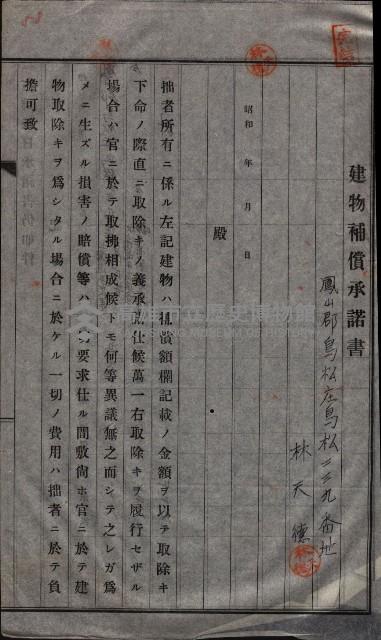 建物補償承諾書
鳳山郡鳥松庄鳥松二三九番地
林天德
昭和　年　月　日
殿
拙者所有ニ係ル左記建物ハ補償額欄記載ノ金額ヲ以テ取除キ
下命ノ際直ニ取除キノ義承諾仕候萬一右取除キヲ履行セザル
場合ハ官ニ於テ取拂相成候トモ何等異議無之而シテ之レガ爲
メニ生ズル損害ノ賠償等ハ一切要求仕ル間敷尙ホ官ニ於テ建
物取除キヲ爲シタル場合ニ於ケル一切ノ費用ハ拙者ニ於テ負
擔可致